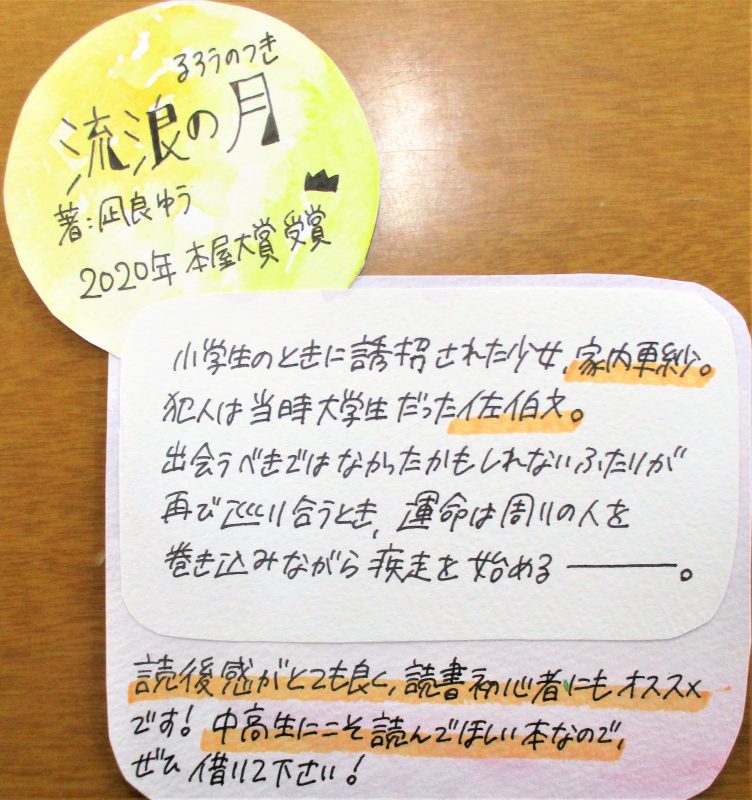 るろうのつき
流浪の月
著:凪良ゆう
2020年 本屋大賞 受賞
小学生のときに誘拐された少女、家内更紗。
犯人は当時大学生だった佐伯文。
出会うべきではなかったかもしれないふたりが
再び巡り合うとき、運命は周りの人を
巻き込みながら疾走を始める――。
読後感がとても良く、読書初心者にもオススメ
です! 中高生にこそ読んでほしい本なので、
ぜひ借りて下さい!